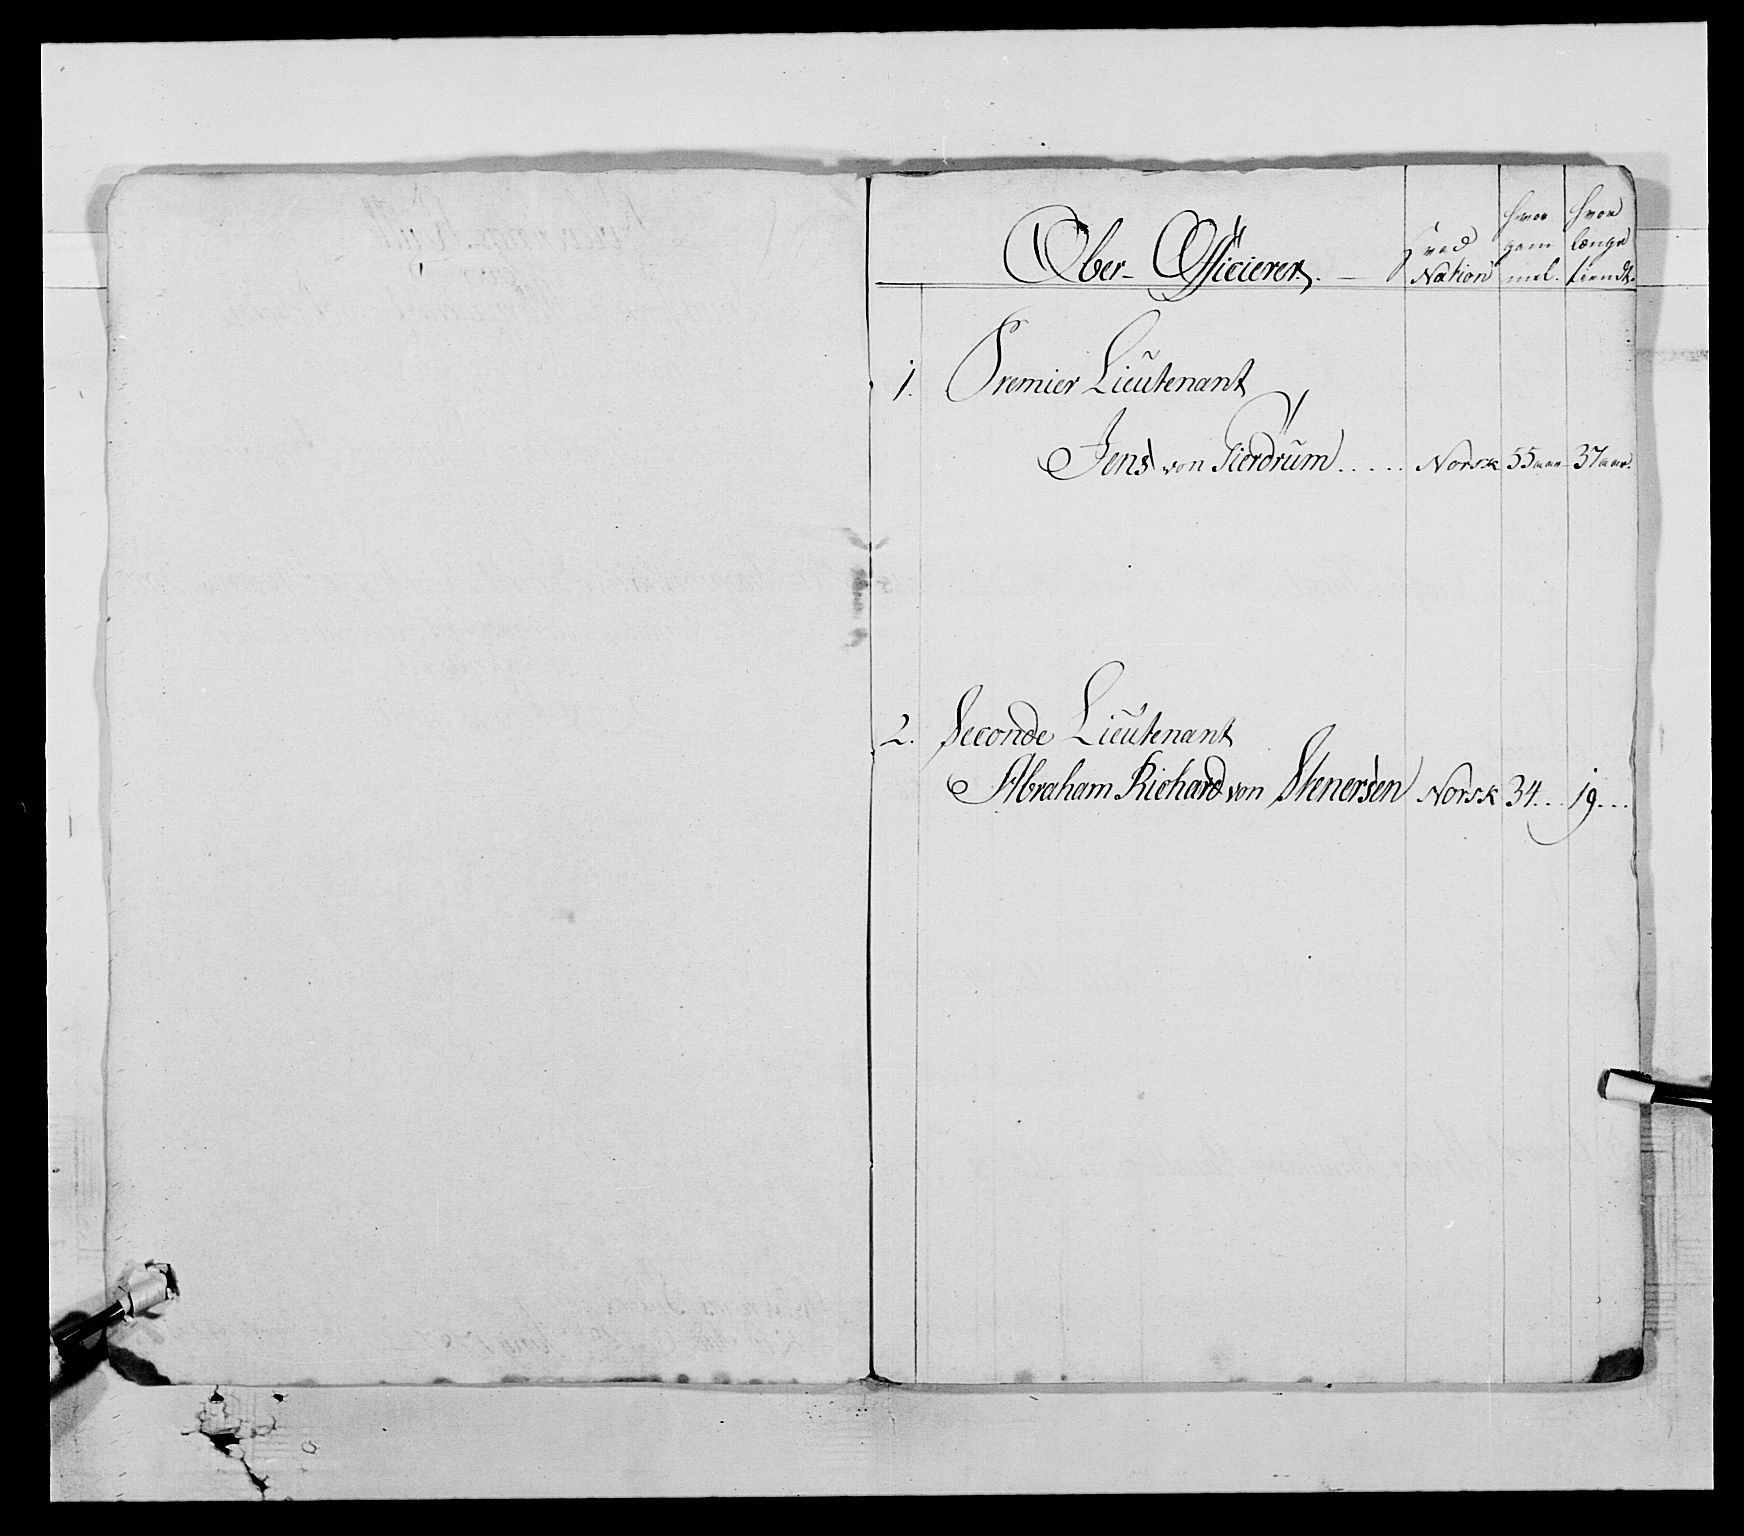 Ober-Officierer. — Hvad Nation | hvor gam mel. | hvor længe tiendt.
1. Premier Lieutenant
Jens von Tierdrum..... Norsk 55 aar 37 aar.
2. Seconde Lieutenant
Abraham Richard von Stenersen Norsk 34... 19...